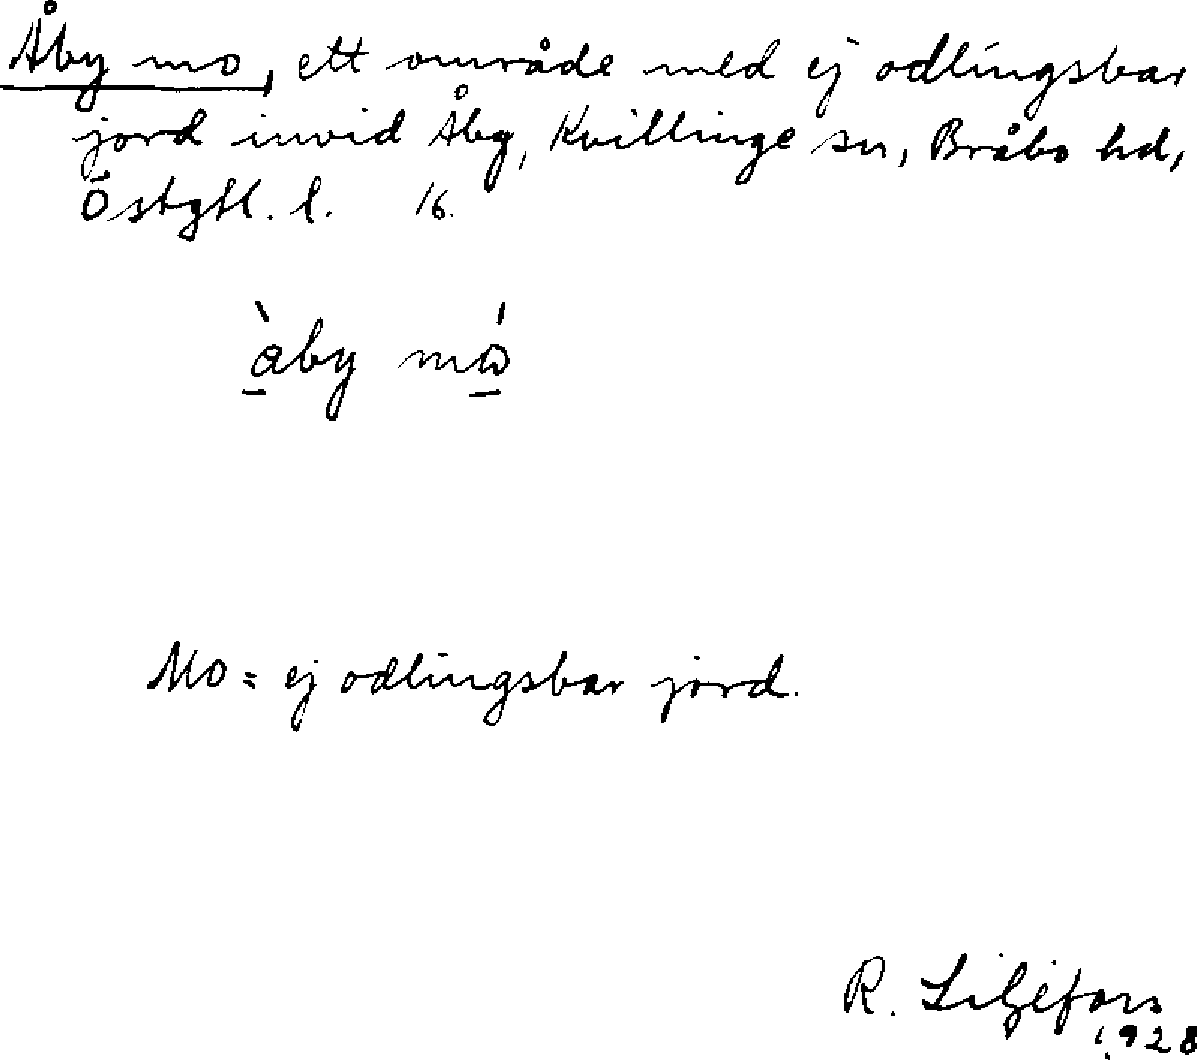 Åby mo, ett område med ej odlingsbar
jord invid Åby, Kvillinge sn, Bråbo hd,
Östgtl. l. 16.
åby mo
Mo = ej odlingsbar jord.
R. Liljefors
1928